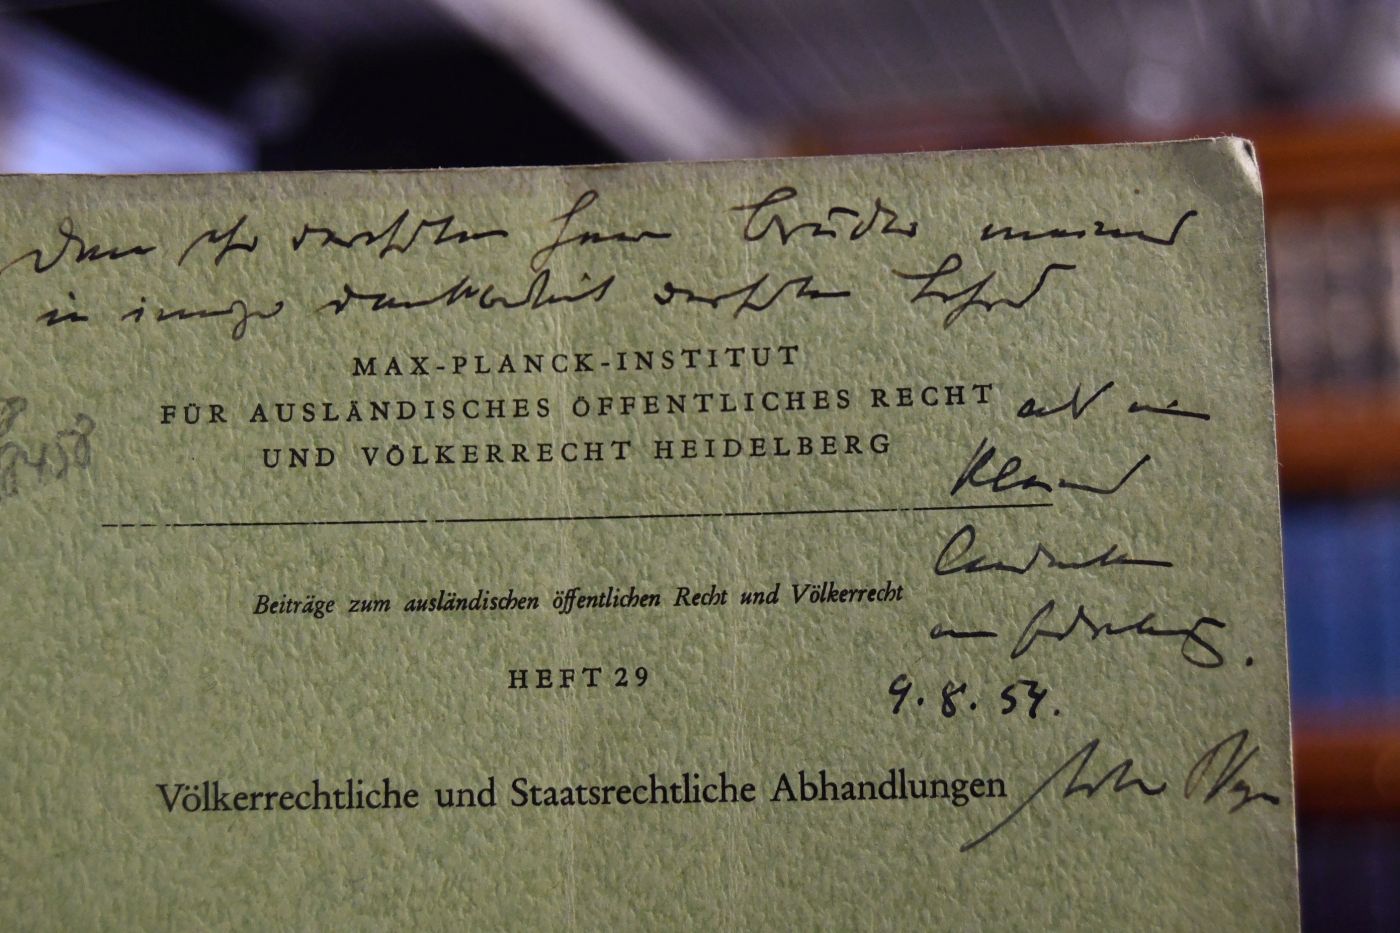 Dem sehr verehrten Herrn Bruder meines
in inniger Dankbarkeit verehrten Lehrers
MAX-PLANCK-INSTITUT
FÜR AUSLÄNDISCHES ÖFFENTLICHES RECHT
als ein
UND VÖLKERRECHT HEIDELBERG
kleines
Beiträge zum ausländischen öffentlichen Recht und Völkerrecht
HEFT 29
9.8.54.
Völkerrechtliche und Staatsrechtliche Abhandlungen